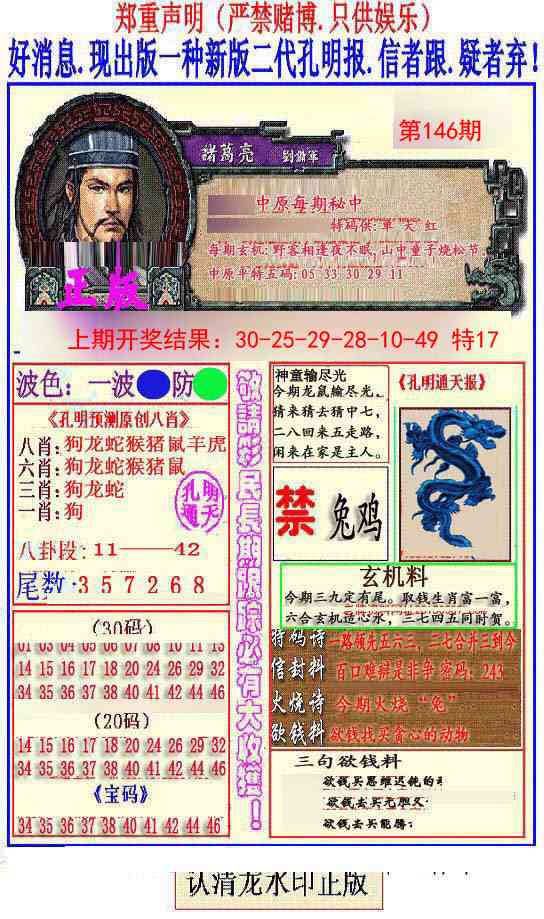 郑重声明（严禁赌博.只供娱乐）
好消息.现出版一种新版二代孔明报.信者跟.疑者弃!
第146期
諸葛亮 劉備軍
中原每期秘中
特码供:單 大 红
每期玄机:野客相逢夜不眠,山中童子烧松节.
中原平特五码:05 33 30 29 11
正版
上期开奖结果：30-25-29-28-10-49 特17
波色：一波 防
《孔明预测原创八肖》
八肖:狗龙蛇猴猪鼠羊虎
六肖:狗龙蛇猴猪鼠
三肖:狗龙蛇
一肖:狗
孔明
通天
八卦段:11——42
尾数:357268
(30码)
01 03 04 05 06 07 08 09 10 13
14 15 16 17 18 20 24 26 29 32
34 35 36 37 38 40 41 42 44 46
(20码)
14 15 16 17 18 20 24 26 29 32
34 35 36 37 38 40 41 42 44 46
《宝码》
34 35 36 37 38 40 41 42 44 46
敬請彩民長期跟踪必有大收獲！
神童输尽光
今期龙鼠输尽光。
猜来猜去猜中七，
二八回来五走路，
闲来在家是主人。
《孔明通天报》
禁 兔鸡
玄机料
今期三九定有尾。取钱生肖富一富，
六合玄机造心水，三七四五同时贺。
特码诗 一路领先五六三，二七合并三到今
信封料 百口难辩是非争 密码：243
火烧诗 今期火烧“兔”
欲钱料 欲钱找买贪心的动物
三句欲钱料
欲钱买思维迟钝的
欲钱去买无胆义
欲钱去买能腾
认清龙水印正版